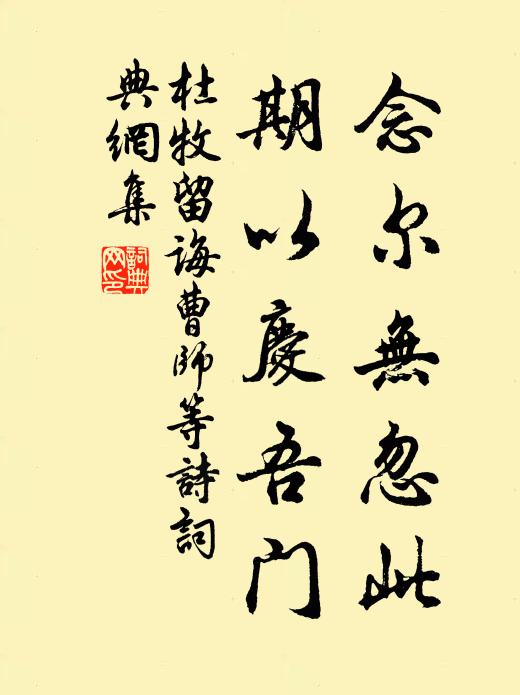 念尔無忽此
期以慶吾门
杜牧留誨曹師等詩詞
典網集
詞典
网印